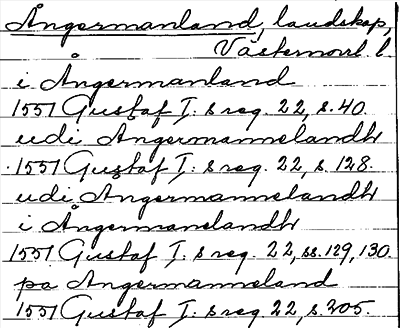 Ångermanland, landskap,
Västernorrl. l.
i Ångermanland
1551 Gustaf I: s reg. 22, s. 40.
udi Ångermannelandh
1551 Gustaf I: s reg. 22, s. 128.
udi Ångermannelandh
i Ångermanelandh
1551 Gustaf I: s reg. 22, ss. 129, 130.
pa Angermanneland
1551 Gustaf I: s reg. 22, s. 205.